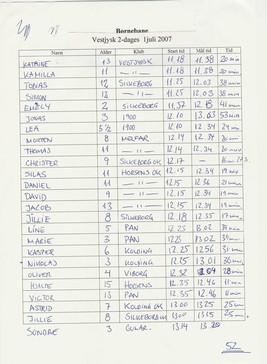 Børnebane
Vestjysk 2-dages 1juli 2007
Navn Alder Klub Start tid Mål tid Tid
KATRINE 13 VESTJYSK 11.18 11.38 20 min
KAMILLA 11 — 11 — 11.18 11.38 20 min
TOBIAS 12 SILKEBORG 11.25 12.03 38 min
SIMON 12 — 11 — 11.25 12.03 38 min
EMILY 2 SILKEBORG 11.37 12.18 41 min
JONAS 3 1900 12.10 13.03 53 min
LEA 5½ 1900 12.10 12.34 24 min
MORTEN 8 12.14 12.34
THOMAS 11 — 11 — 12.14 12.34 20 min
CHRISTER 9 SILKEBORG OK 12.17 —
SILAS 11 HORSENS OK 12.15 12.34 19 min
DANIEL 11 — 11 — 12.15
DAVID 9 — 11 — 12.15
JACOB 13 — 11 — 12.15 12.34 19 min
JILLIE 8 SILKEBORG 12.18 12.35 17 min
LINE 5 PAN 12.25 13.02
MARIE 3 PAN 12.25 13.02
KASPER 6 KOLDING 12.25 12.56 31 min
NIKOLAJ 3 KOLDING 12.25 13.01 36 min
OLIVER 4 VIBORG 12.32
15 HORSENS 12.35 12.46 11 min
VICTOR 13 PAN 12.35 12.46 11 min
ASTRID 7 KOLDING OK 13.00 13.25 25 min
JILLIE 8 SILKEBORG 13.00 13.25 25 min
SONDRE 3 GULAR. 13.14 13.20
52